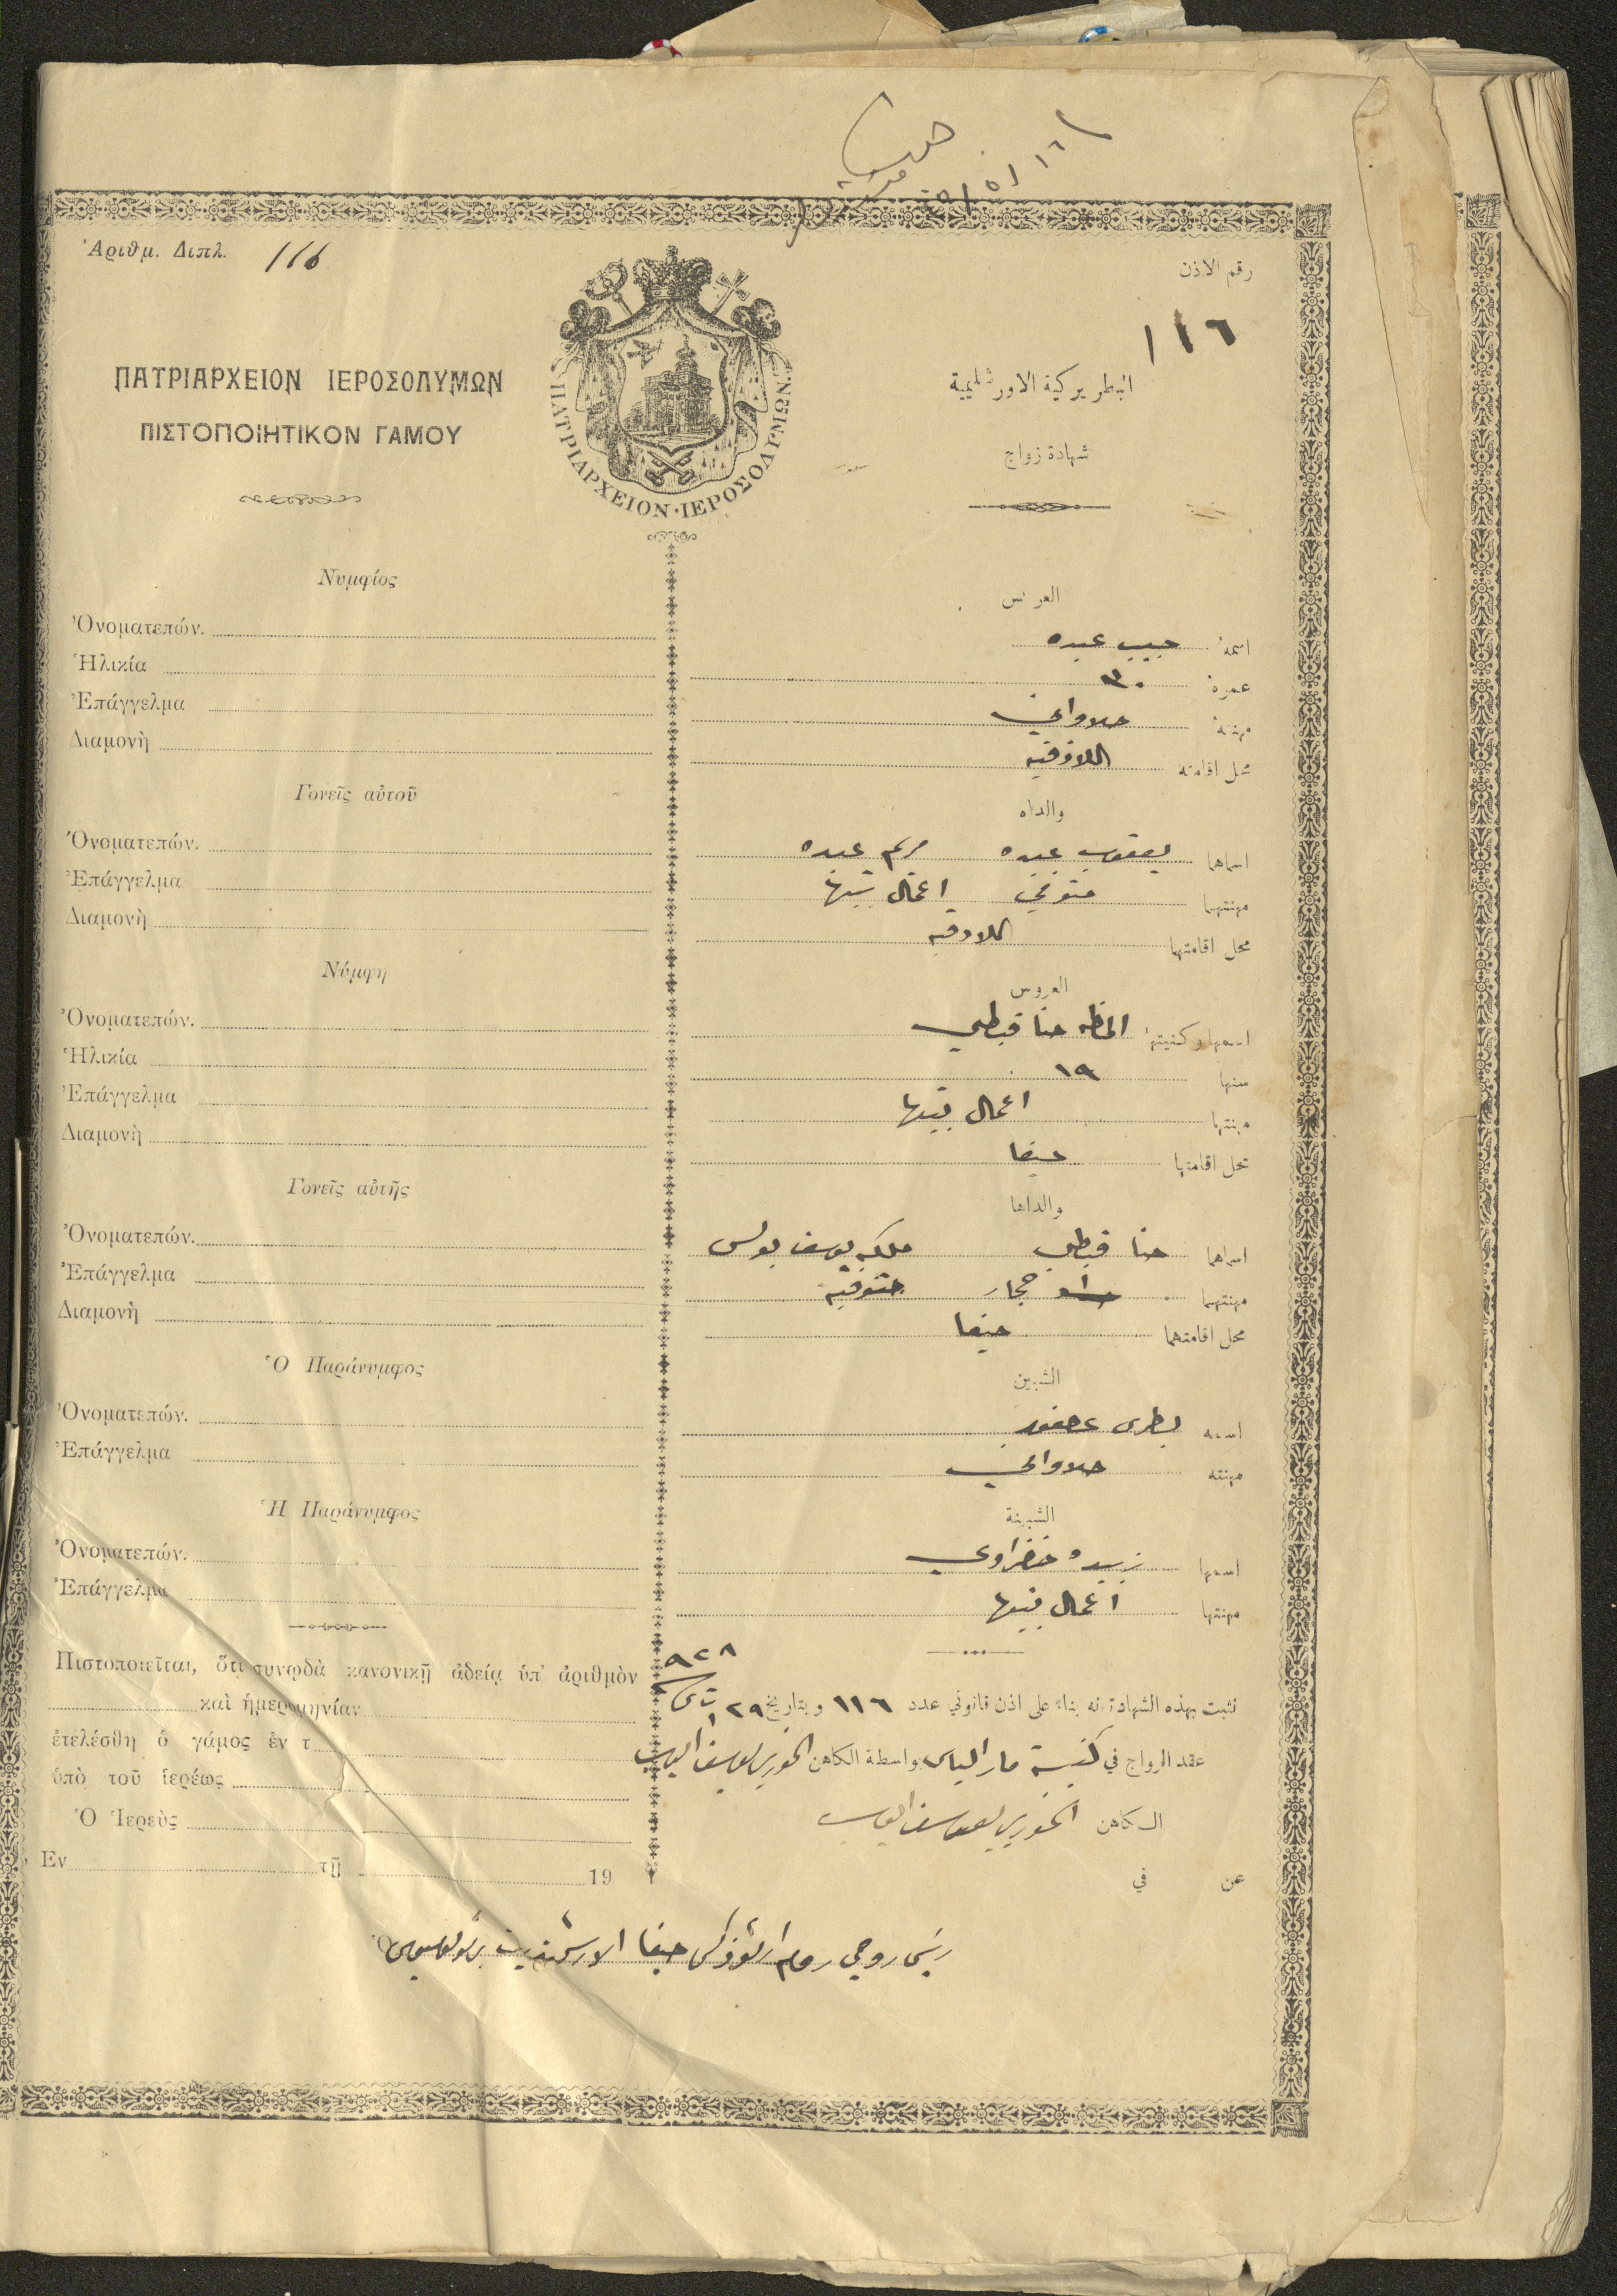 Ἀριθμ. Διπλ. 116
رقم الاذن
١١٦
ΠΑΤΡΙΑΡΧΕΙΟΝ ΙΕΡΟΣΟΛΥΜΩΝ
ΠΙΣΤΟΠΟΙΗΤΙΚΟΝ ΓΑΜΟΥ
ΠΑΤΡΙΑΡΧΕΙΟΝ·ΙΕΡΟΣΟΛΥΜΩΝ
البطريركية الاورشليمية
شهادة زواج
Νυμφίος
Ὀνοματεπών.
Ἡλικία
Ἐπάγγελμα
Διαμονὴ
Γονεῖς αὐτοῦ
Ὀνοματεπών.
Ἐπάγγελμα
Διαμονὴ
Νύμφη
Ὀνοματεπών.
Ἡλικία
Ἐπάγγελμα
Διαμονὴ
Γονεῖς αὐτῆς
Ὀνοματεπών.
Ἐπάγγελμα
Διαμονὴ
Ὁ Παράνυμφος
Ὀνοματεπών.
Ἐπάγγελμα
Ἡ Παράνυμφος
Ὀνοματεπών.
Ἐπάγγελμα
Πιστοποιεῖται, ὅτι συνῳδὰ κανονικῇ ἀδείᾳ ὑπ' ἀριθμὸν
καὶ ἡμερομηνίαν
ἐτελέσθη ὁ γάμος ἐν τ
ὑπὸ τοῦ ἱερέως
Ὁ Ἱερεὺς
Ἐν τῇ 19
العريس
اسمهُ حبيب عبده
عمرهُ ٣٠
مهنتهُ حلاواني
محل اقامته اللاذقيه
والداه
اسماهما يعقوب عبده مريم عبده
مهنتهما متوفي اعمال بيتها
محل اقامتهما اللاذقيه
العروس
اسمها وكنيتها الماظه حنا قبطي
سنها ١٩
مهنتها اعمال بيتها
محل اقامتها حيفا
والداها
اسماهما حنا قبطي ملكه يوسف بولس
مهنتهما حجار متوفيه
محل اقامتهما حيفا
الشبين
اسمه بطرس عصفور
مهنته حلاواني
الشبينة
اسمها زبيده خضراوي
مهنتها اعمال بيتها
نثبت بهذه الشهادة انه بناءً على اذن قانوني عدد ١١٦ وبتاريخ ٢٩ ت١ ٩٢٨
عقد الزواج في كنيسة مار الياس بواسطة الكاهن الخوري يوسف
الكاهن الخوري يوسف
عن في
رئيس روحي روم ارثوذكس حيفا الارشمندريت